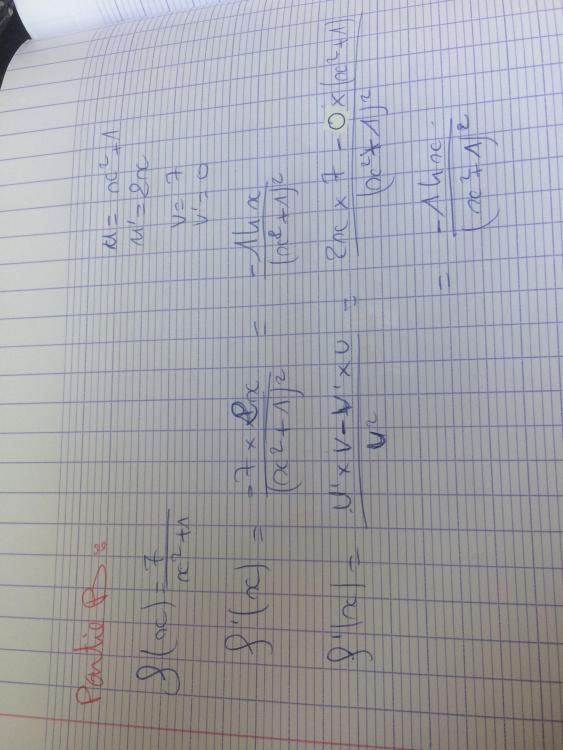 Partie B :
f(x) = 7 / x²+1
u = x²+1
u' = 2x
v = 7
v' = 0
f'(x) = -7 × 2x / (x²+1)² = -14x / (x²+1)²
f'(x) = u' × v - v' × u / u² = 2x × 7 - 0 × (x²+1) / (x²+1)²
= -14x / (x²+1)²